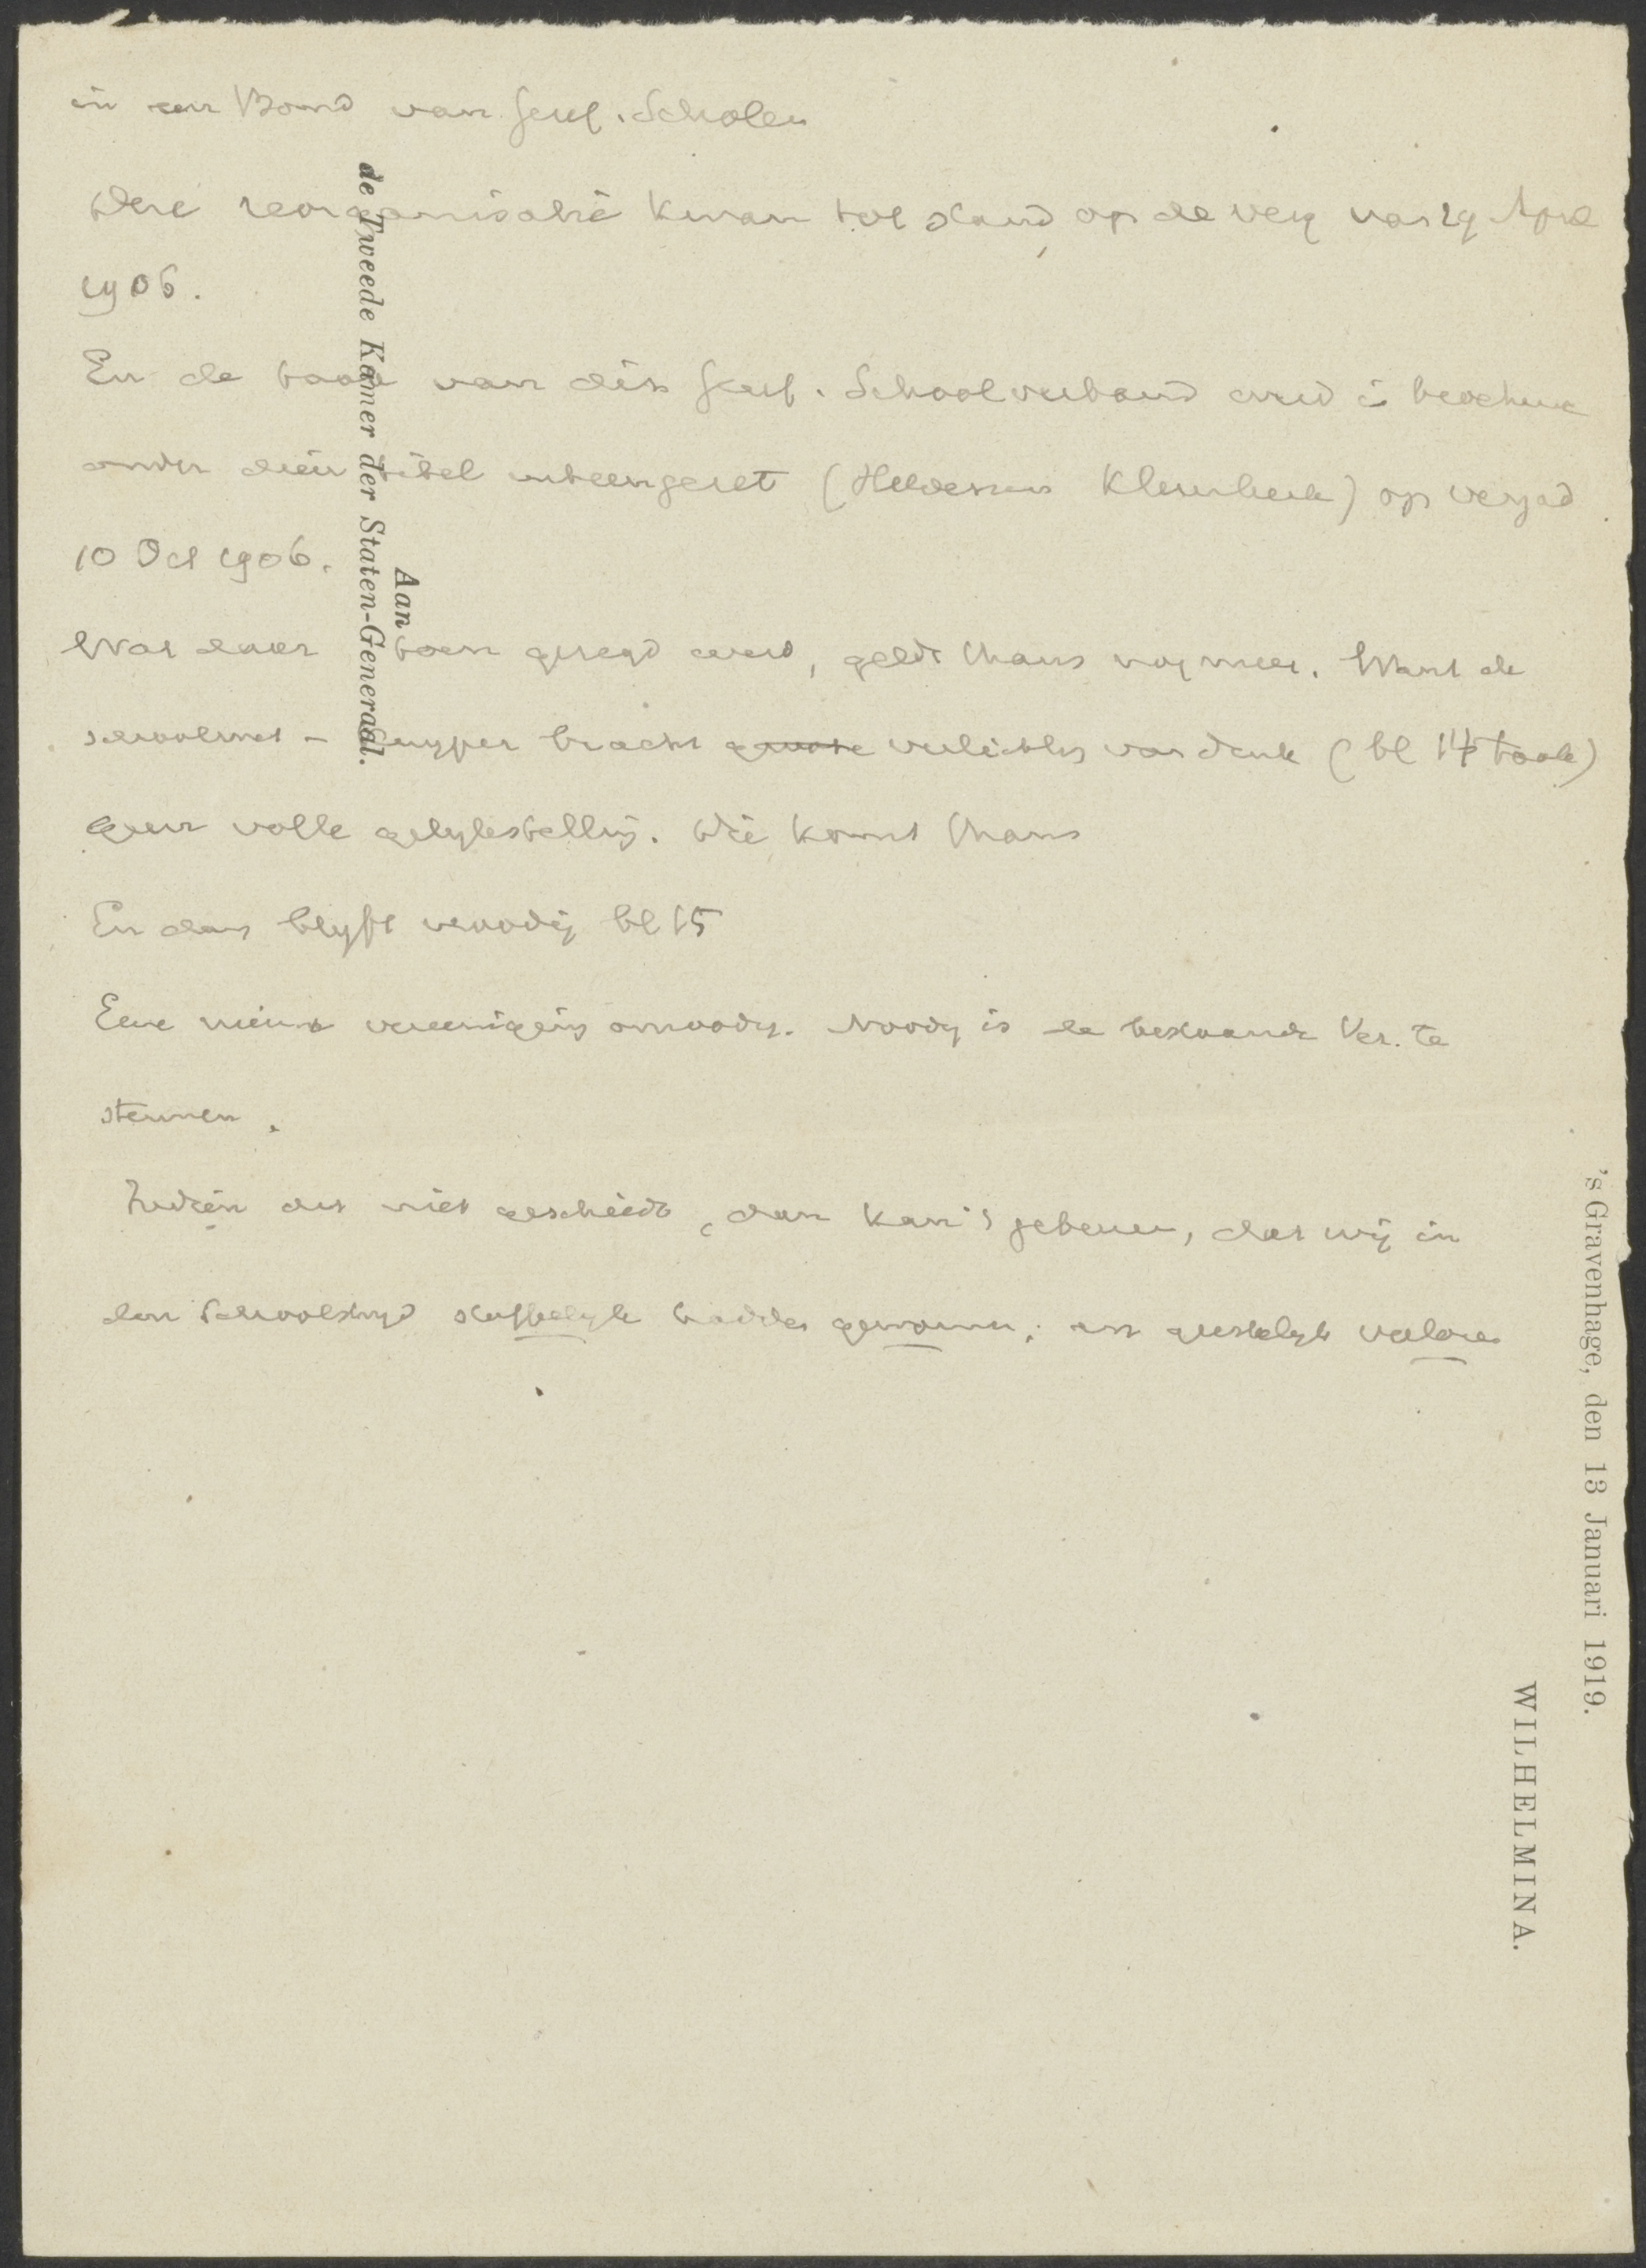 in een Bond van Geref. Scholen
Deze reorganisatie kwam tot stand op de verg van 19 April
1906.
En de taak van dit Geref. Schoolverband werd i brochure
onder dien titel uiteengezet (Helderman Klerebeek) op vergad
10 Oct 1906.
Wat daar toen gezegd werd, geldt thans nog meer. Want de
schoolwet - Kuyper bracht groote verlichting van druk (bl 14 taak)
geen volle gelykstelling. Die komt thans
En dan blyft noodig bl 15
Eene nieuwe vereeniging onnoodig. Noodig is de bestaande Ver. te
steunen.
Indien dit niet geschiedt, dan kan 't gebeuren, dat wij in
den Schoolstryd stoffelyk hadden gewonnen; en geestelyk verloren
Aan
de Tweede Kamer der Staten-Generaal.
's Gravenhage, den 13 Januari 1919.
WILHELMINA.